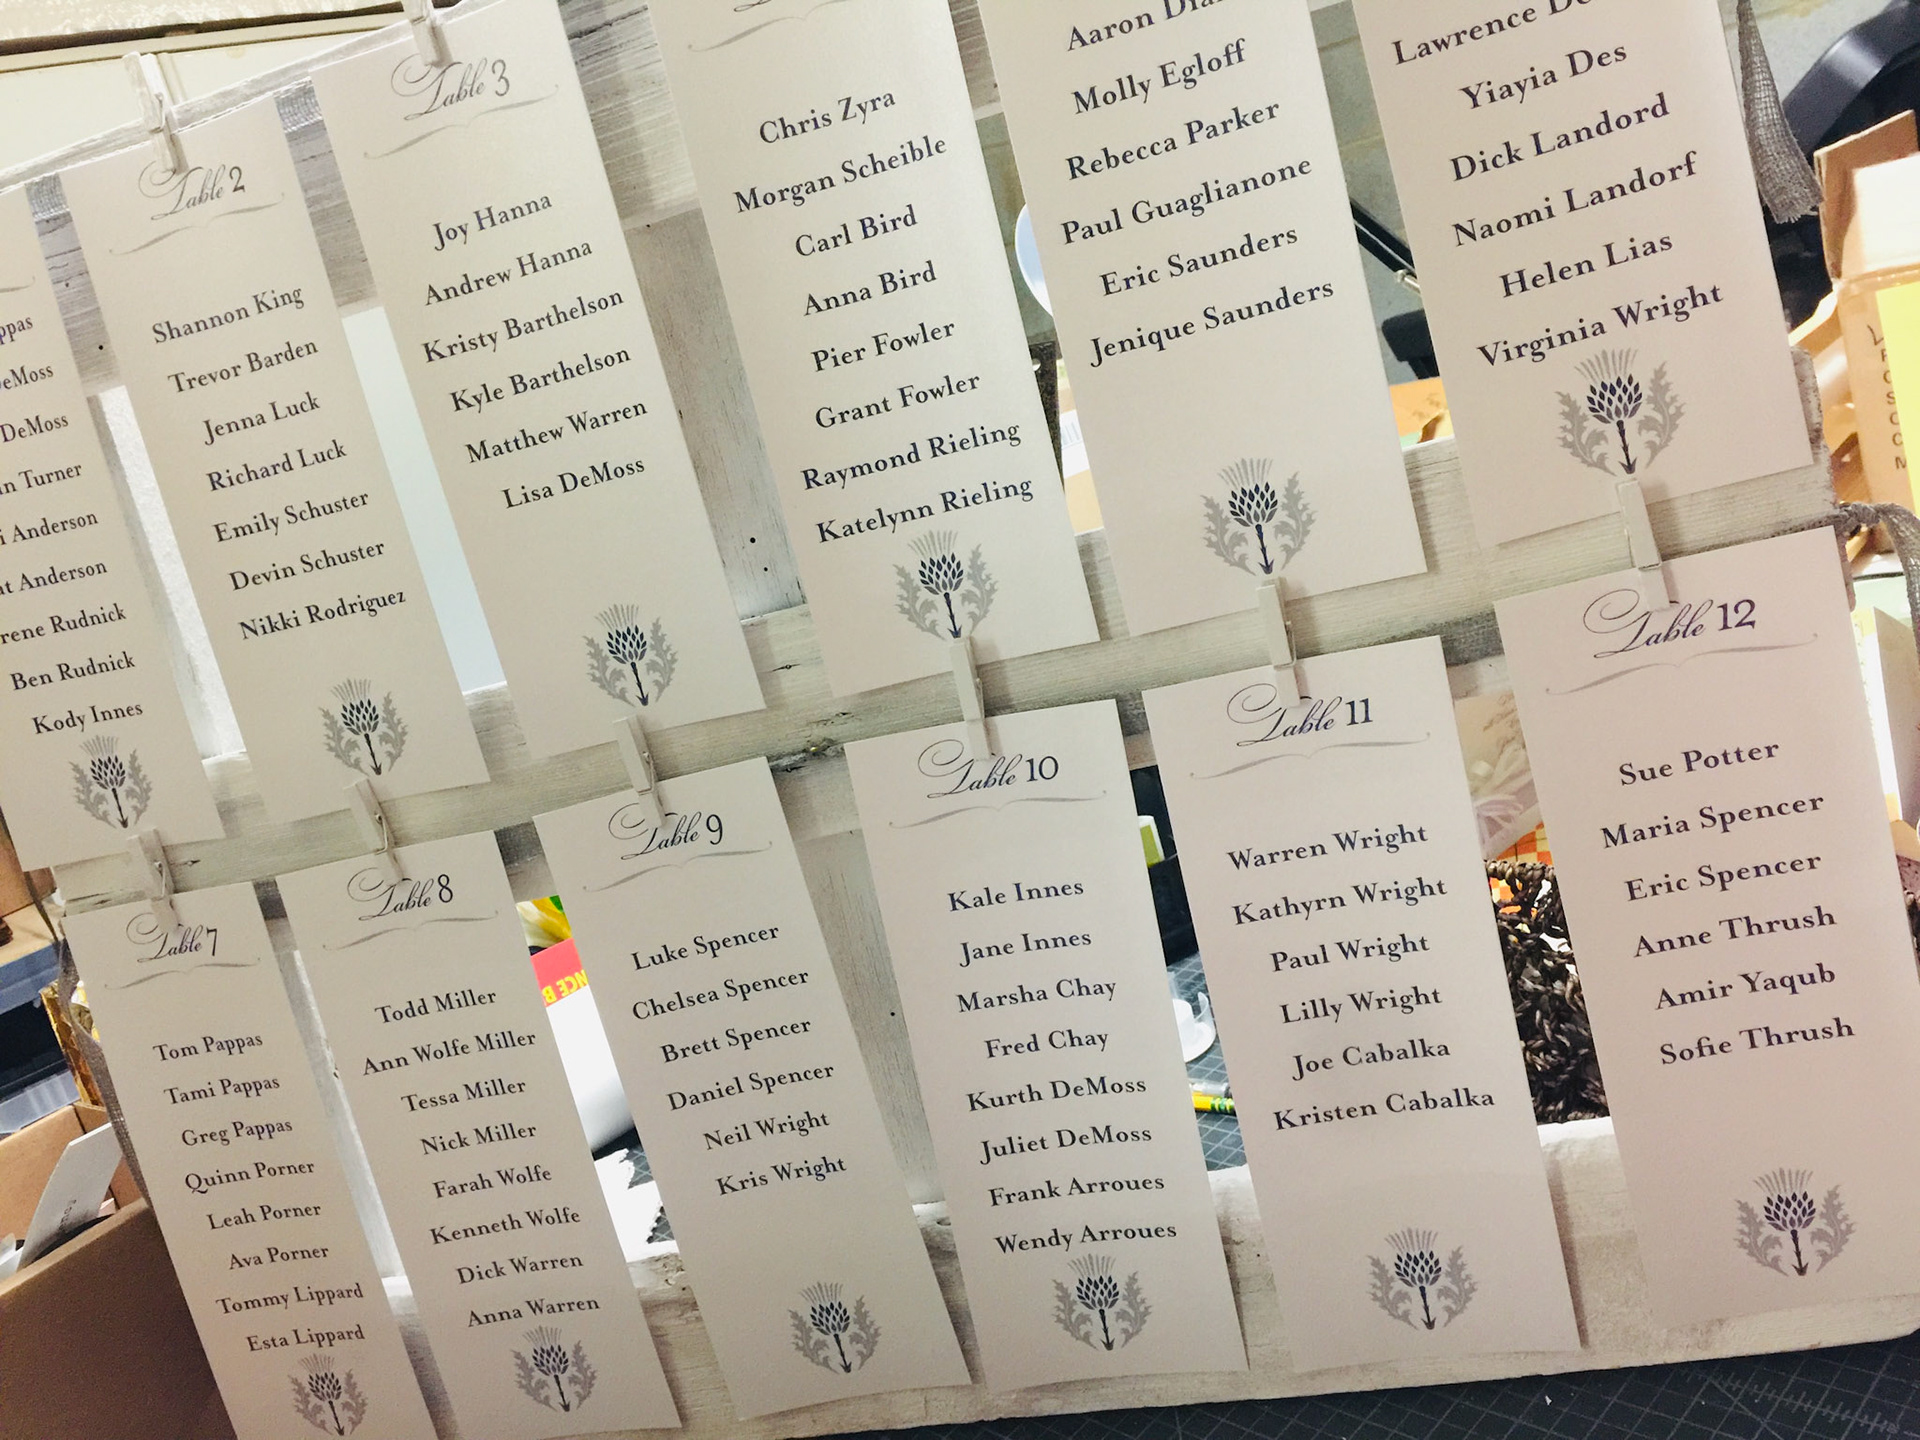 DeMoss
Turner
Anderson
Anderson
Rudnick
Ben Rudnick
Kody Innes
Table 2
Shannon King
Trevor Barden
Jenna Luck
Richard Luck
Emily Schuster
Devin Schuster
Nikki Rodriguez
Table 3
Joy Hanna
Andrew Hanna
Kristy Barthelson
Kyle Barthelson
Matthew Warren
Lisa DeMoss
Chris Zyra
Morgan Scheible
Carl Bird
Anna Bird
Pier Fowler
Grant Fowler
Raymond Rieling
Katelynn Rieling
Aaron
Molly Egloff
Rebecca Parker
Paul Guaglianone
Eric Saunders
Jenique Saunders
Lawrence
Yiayia Des
Dick Landord
Naomi Landorf
Helen Lias
Virginia Wright
Table 7
Tom Pappas
Tami Pappas
Greg Pappas
Quinn Porner
Leah Porner
Ava Porner
Tommy Lippard
Esta Lippard
Table 8
Todd Miller
Ann Wolfe Miller
Tessa Miller
Nick Miller
Farah Wolfe
Kenneth Wolfe
Dick Warren
Anna Warren
Table 9
Luke Spencer
Chelsea Spencer
Brett Spencer
Daniel Spencer
Neil Wright
Kris Wright
Table 10
Kale Innes
Jane Innes
Marsha Chay
Fred Chay
Kurth DeMoss
Juliet DeMoss
Frank Arroues
Wendy Arroues
Table 11
Warren Wright
Kathyrn Wright
Paul Wright
Lilly Wright
Joe Cabalka
Kristen Cabalka
Table 12
Sue Potter
Maria Spencer
Eric Spencer
Anne Thrush
Amir Yaqub
Sofie Thrush